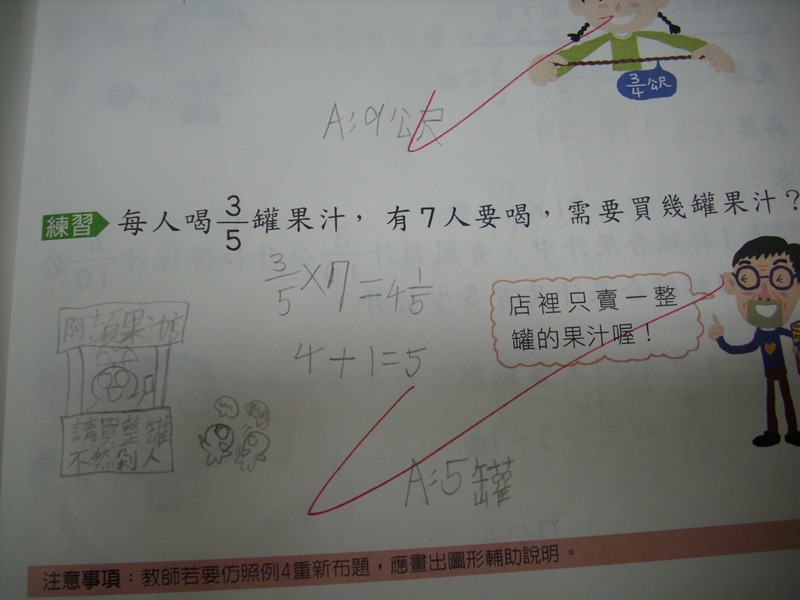 3/4公尺
A:9公尺
練習 每人喝3/5罐果汁，有7人要喝，需要買幾罐果汁？
3/5×7=4 1/5
店裡只賣一整
罐的果汁喔！
4+1=5
請買整罐
不然剁人
A:5罐
注意事項：教師若要仿照例4重新布題，應畫出圖形輔助說明。